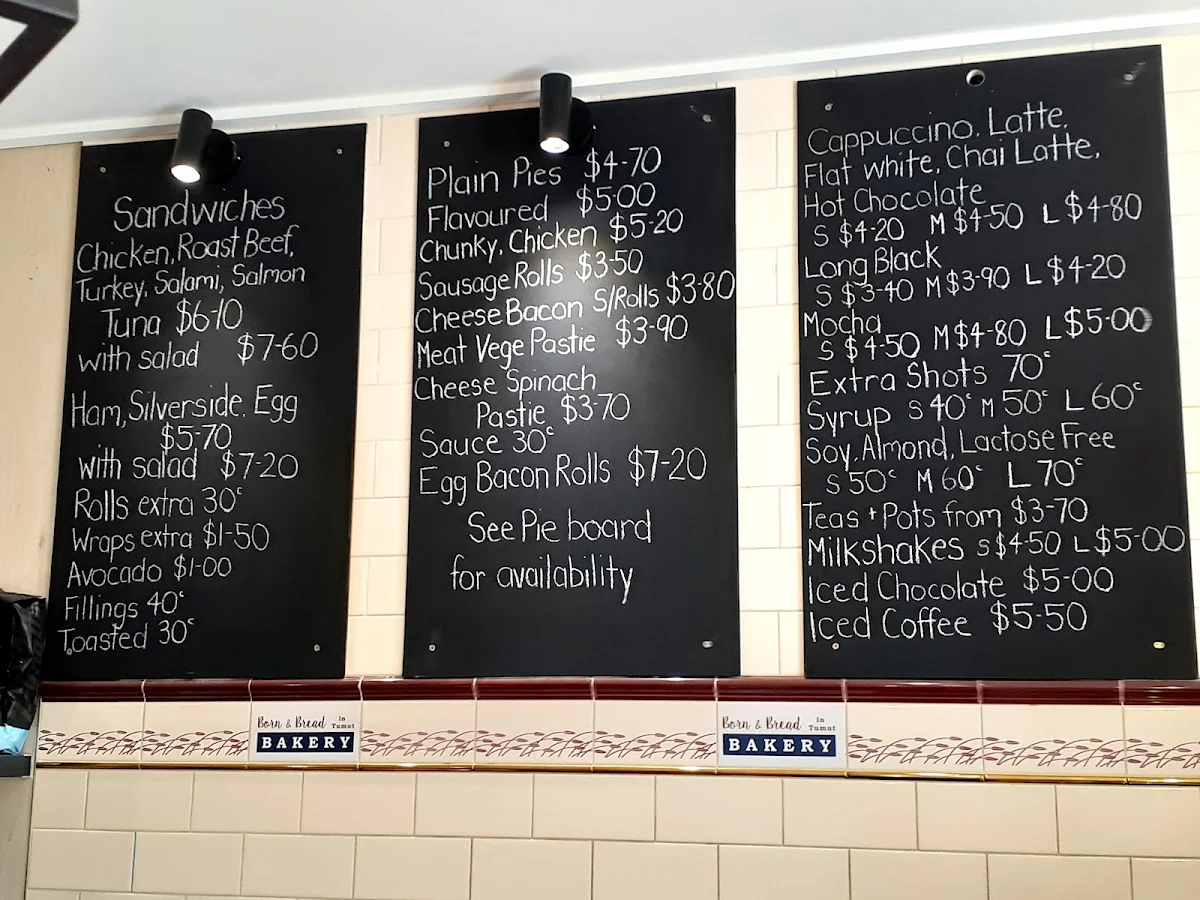 Sandwiches
Chicken, Roast Beef,
Turkey, Salami, Salmon
Tuna $6-10
with salad $7-60
Ham, Silverside. Egg
$5-70
with salad $7-20
Rolls extra 30c
Wraps extra $1-50
Avocado $1-00
Fillings 40c
Toasted 30c
Plain Pies $4-70
Flavoured $5-00
Chunky, Chicken $5-20
Sausage Rolls $3-50
Cheese Bacon S/Rolls $3-80
Meat Vege Pastie $3-90
Cheese Spinach
Pastie $3-70
Sauce 30c
Egg Bacon Rolls $7-20
See Pie board
for availability
Cappuccino. Latte,
Flat white, Chai Latte,
Hot Chocolate
S $4-20 M $4-50 L $4-80
Long Black
S $3-40 M $3-90 L $4-20
Mocha
S $4-50 M $4-80 L $5-00
Extra Shots 70c
Syrup S 40c M 50c L 60c
Soy, Almond, Lactose Free
S 50c M 60c L 70c
Teas + Pots from $3-70
Milkshakes S $4-50 L $5-00
Iced Chocolate $5-00
Iced Coffee $5-50
Born & Bread in Tumut
BAKERY
Born & Bread in Tumut
BAKERY